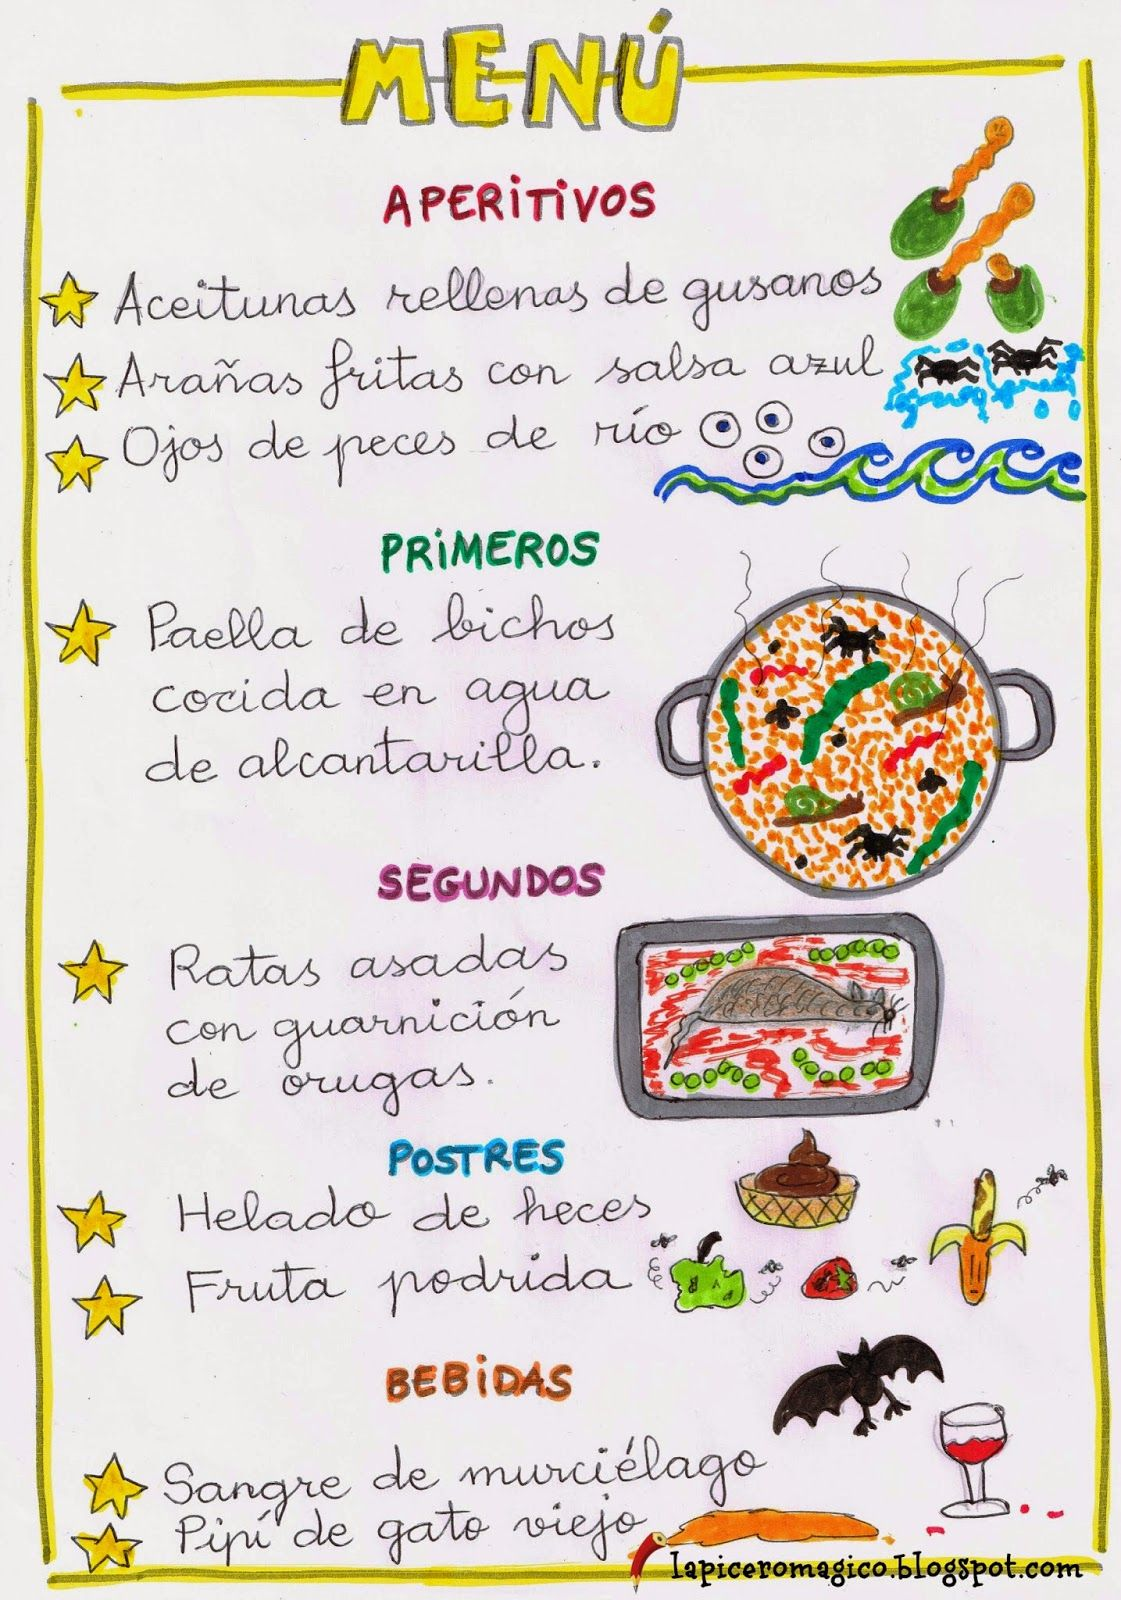 MENÚ
APERITIVOS
Aceitunas rellenas de gusanos
Arañas fritas con salsa azul
Ojos de peces de río
PRIMEROS
Paella de bichos
cocida en agua
de alcantarilla.
SEGUNDOS
Ratas asadas
con guarnición
de orugas.
POSTRES
Helado de heces
Fruta podrida
BEBIDAS
Sangre de murciélago
Pipí de gato viejo
lapiceromagico.blogspot.com